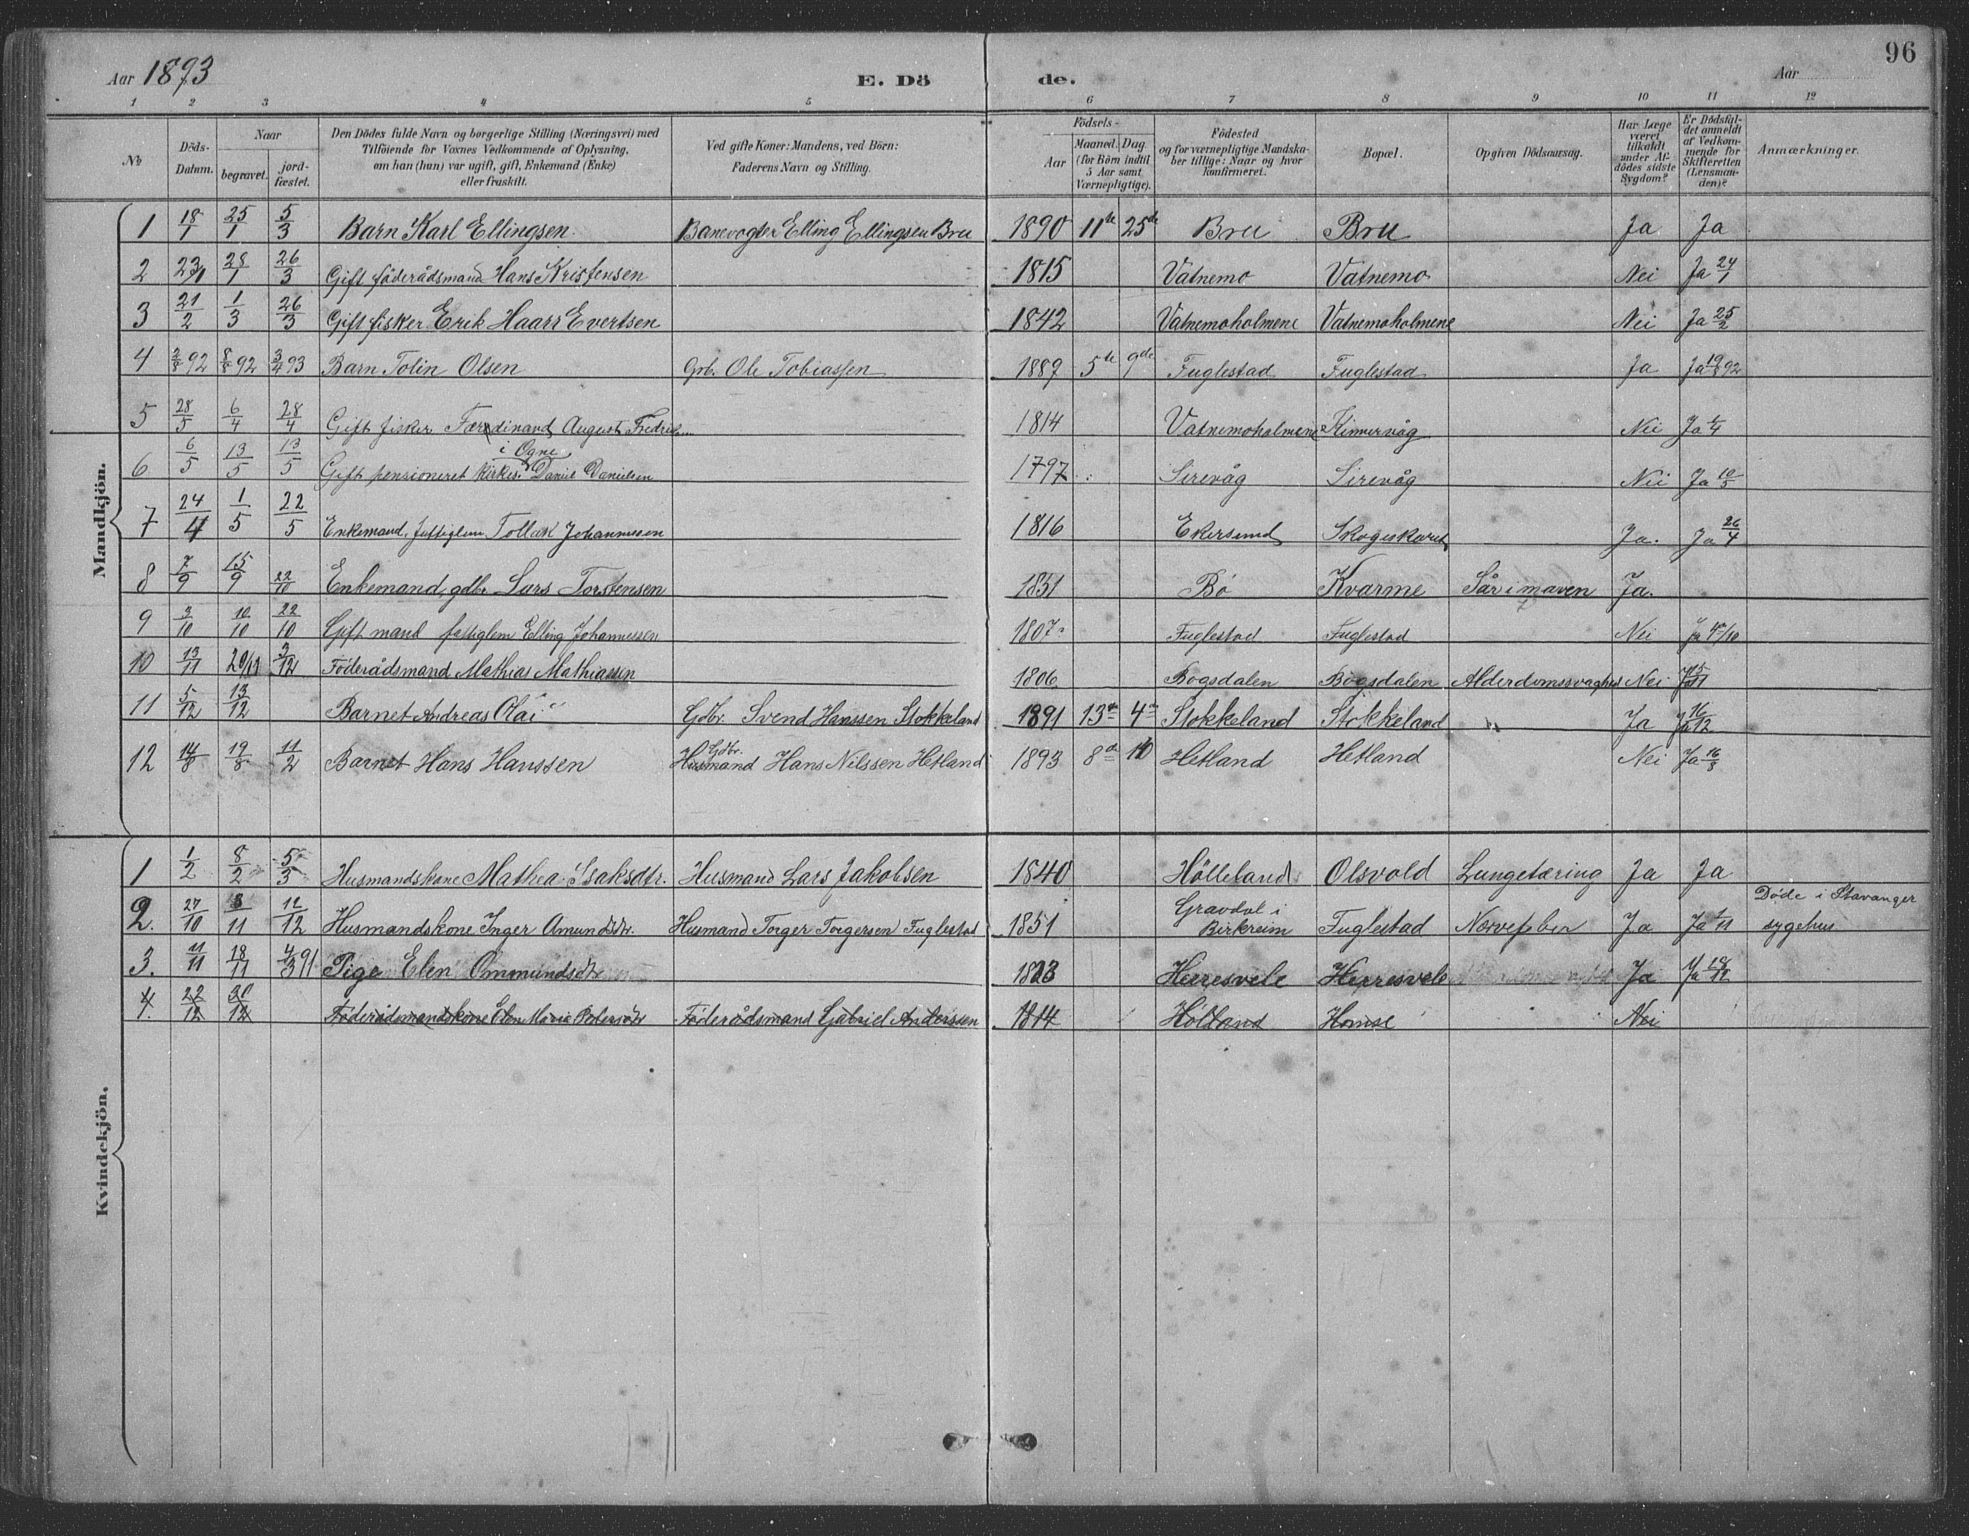 96
Aar 1893 E. Dö de. Aar
1 2 3 4 5 6 7 8 9 10 11 12
No
Döds-Datum.
Naar
begravet.
jord-fæstet.
Den Dödes fulde Navn og borgerlige Stilling (Næringsvei) med
Tilföiende for Voxnes Vedkommende af Oplysning,
om han (hun) var ugift, gift, Enkemand (Enke)
eller fraskilt.
Ved gifte Koner: Mandens, ved Börn:
Faderens Navn og Stilling.
Födsels-
Aar
Maaned. Dag.
(for Börn indtil
5 Aar samt
Værnepligtige).
Födested
og for værnepligtige Mandska-
ber tillige: Naar og hvor
konfirmeret.
Bopæl.
Opgiven Dödsaarsag.
Har Læge
været
tilkaldt
under Af-
dödes sidste
Sygdom?
Er Dödsfal-
det anmeldt
af Vedkom-
mende for
Skifteretten
(Lensman-
den)?
Anmærkninger.
Mandkjön.
1 18/1 25/1 5/3 Barn Karl Ellingsen. Banevogter Elling Ellingsen Bru 1890 11te 25de Bru Bru Ja Ja
2 23/1 28/1 26/3 Gift föderådsmand Hans Kristensen 1815 Vatnemo Vatnemo Nei Ja 24/1
3 21/2 1/3 26/3 Gift fisker Erik Haarr Evertsen 1842 Vatnemoholmene Vatnemoholmene Nei Ja 25/2
4 2/8 92 8/8 92 3/4 93 Barn Tolin Olsen Grb. Ole Tobiassen 1889 5te 9de Fuglestad Fuglestad Ja Ja 19/8 92
5 28/5 6/4 28/4 Gift fisker Færdinand August Fredrik 1814 Vatnemoholmene Kirrervåg Nei Ja 1/4
6 6/5 13/5 13/5 Gift pensioneret kirkes. i Ogne Daniel Danielsen 1797 Sirevåg Sirevåg Nei Ja 10/5
7 24/4 1/5 22/5 Enkemand, fattiglem Tollak Johannessen 1816 Ekersund Skogeskaret Ja. Ja 26/4
8 7/9 15/9 22/10 Enkemand, gdbr. Lars Torstensen 1851 Bö Kvarme Sår i maven Ja.
9 3/10 10/10 22/10 Gift mand fattiglem Elling Johannessen 1807 Fuglestad Fuglestad Nei Ja 4/10
10 13/11 20/11 3/12 Föderådsmand Mathias Mathiassen 1806 Bogsdalen Bogsdalen Alderdomssvaghed Nei Ja 15/11
11 5/12 13/12 Barnet Andreas Olai Gdbr. Svend Hanssen Stokkeland 1891 13de 4de Stokkeland Stokkeland " Ja Ja 16/12
12 14/8 19/8 11/2 Barnet Hans Hanssen Gdbr. Husmand Hans Nilssen Hetland 1893 8de 10 Hetland Hetland Nei Ja 16/8
Kvindekjön.
1 1/2 8/2 5/3 Husmandskone Mathea Isaksdtr. Husmand Lars Jakobsen 1840 Hölleland Olsvold Lungetæring Ja Ja
2. 27/10 3/11 12/12 Husmandskone Inger Amundsdtr. Husmand Torger Torgersen Fuglestad 1851 Gravdal i Birkreim Fuglestad Nervefeber Ja Ja 1/11 Döde i Stavanger sygehus
3. 11/11 18/11 4/3 91 Pige Elen Ommundsdtr 1813 Herresvele Herresvele Ja Ja 18/12
4. 22/12 30/12 Föderådsmandskone Elen Maria Pedersdtr Föderådsmand Gabriel Anderssen 1814 Hölland Homse Nei